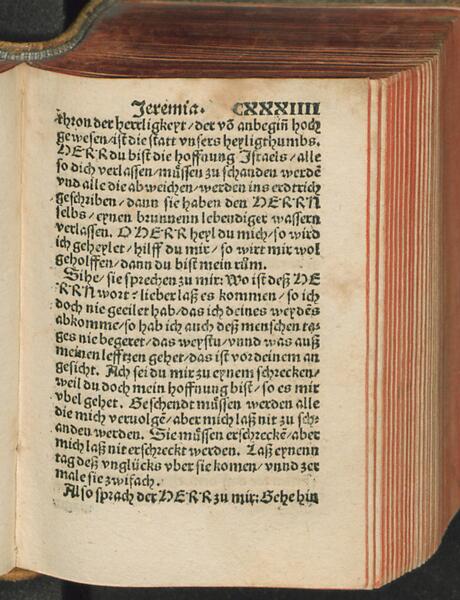 Jeremia. CXXXIIII
thron der herrligkeyt/der võ anbegiñ hoch
gewesen/ist die statt vnsers heyligthumbs.
HERR du bist die hoffnung Israels/alle
so dich verlassen/müssen zu schanden werdẽ
vnd alle die abweichen/werden ins erdtrich
geschriben/dann sie haben den HERRN
selbs/eynen brunnenn lebendiger wassern
verlassen. O HERR heyl du mich/so wird
ich geheylet/hilff du mir/so wirt mir wol
geholffen/dann du bist mein rům.
Sihe/sie sprechen zu mir: Wo ist deß HE
RRN wort? lieber laß es kommen/so ich
doch nie geeilet hab/das ich deines weydẽs
abkomme/so hab ich auch deß menschen ta-
ges nie begeret/das weystu/vnnd was auß
meinen lefftzen gehet/das ist vor deinem an
gesicht. Ach sei du mir zu eynem schrecken/
weil du doch mein hoffnung bist/so es mir
vbel gehet. Geschendt müssen werden alle
die mich veruolgẽ/aber mich laß nit zu sch-
anden werden. Sie müssen erschreckẽ/aber
mich laß nit erschreckt werden. Laß eynenn
tag deß vnglücks vber sie komen/vnnd zer
male sie zwifach.
Also sprach der HERR zu mir: Gehe hin